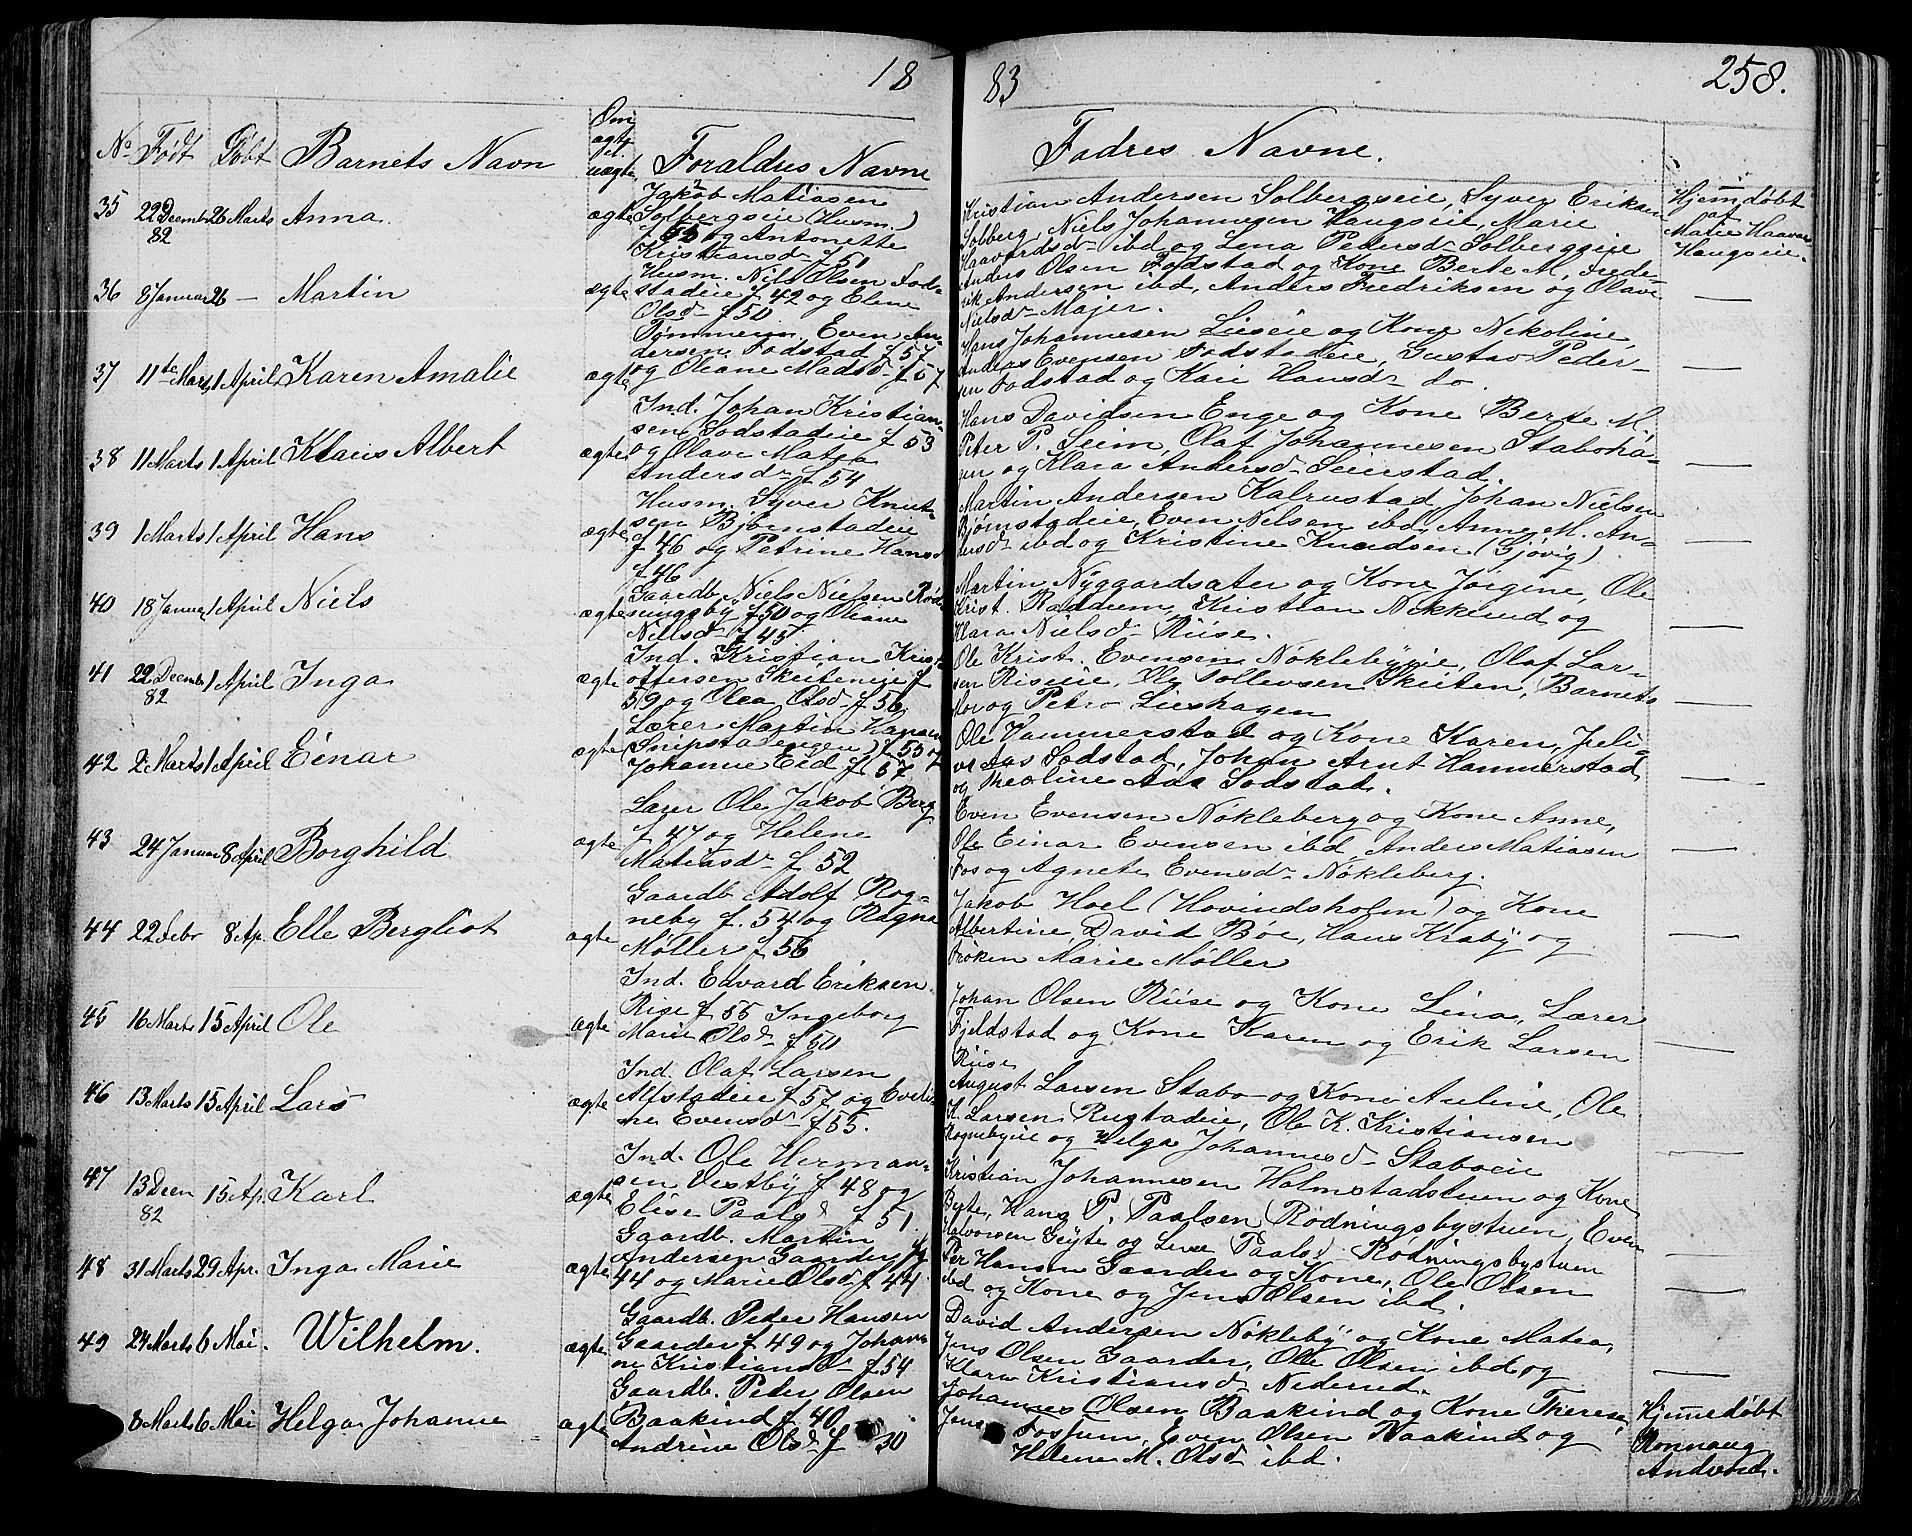 18 83 258.
No Født Døbt Barnets Navn Om ægte el. uægte Foraldres Navne Fadres Navne.
35 22 Decemb 82 26 Marts Anna ægte
Jakob Matiasen
Solbergseie (Husm.)
f 55 og Antonette
Kristiansd f 51
Kristian Andersen Solbergseie, Syver Eriksen
Solberg, Niels Johannesen Haugseie, Marie
Haavardsd ibd og Lena Pedersd Solbergseie
Hjemdøbt
af
Marie Haavar
Haugseie.
36 8 Januar 26 — Martin ægte
Husm. Niels Olsen Fod-
stadeie f 42 og Elene
Olsd f 50
Anders Olsen Fodstad og Kone Berte M, Frede-
rik Andersen ibd, Anders Fredriksen og Olave
Nielsd Majer.
—
37 11te Marts 1 April Karen Amalie ægte
Tømmerm. Even An-
dersen Fodstad f 57
og Oleane Madsd f 57
Hans Johannesen Lieseie og Kone Nikoline,
Anders Evensen Fodstadeie, Gustav Peder-
sen Fodstad og Kari Hansd do.
—
38 11 Marts 1 April Klaus Albert ægte
Ind. Johan Kristian-
sen Sodstadeie f 53
og Olave Matea
Andersd f 54
Hans Davidsen Enge og Kone Berte M.,
Peter P. Seim, Olaf Johannesen Staboha-
gen og Klara Andersd Seierstad.
—
39 1 Marts 1 April Hans ægte
Husm. Syver Knut-
sen Bjørnstadeie
f 46 og Petrine Hansd
f 46
Martin Andersen Kalrustad, Johan Nielsen
Bjørnstadeie, Even Nilsen ibd, Anne M. An-
dersd ibd og Kristine Knudsen (Gjøvig)
—
40 18 Januar 1 April Niels ægte
Gaardb Niels Nielsen Rød-
ningsby f 50 og Oliane
Nielsd f 45
Martin Nygaardsæter og Kone Jørgine, Ole
Krist. Raddum, Kristian Nøkkerud og
Klara Nielsd Riise.
—
41 22 Decemb 82 1 April Inga ægte
Ind. Kristian Krist-
offersen Skjeteneie f
59 og Olea Olsd f 56
Ole Krist. Evensen Nøklebyeie, Olaf Lar-
sen Riseeie, Ole Tollevsen Skjeten, Barnets
Mor og Petra Lieshagen
—
42 2 Marts 1 April Einar ægte
Lærer Martin Hansen
(Snipstadengen) f 55 og
Johanne Eid f 57
Ole Hammerstad og Kone Karen, Juli-
us Aas Sodstad, Johan Arnt Hammerstad
og Theoline Aas Sodstad.
—
43 24 Januar 8 April Borghild ægte
Lærer Ole Jakob Berg
f 47 og Helene
Matiasd f 52
Even Evensen Nøkleberg og Kone Anne,
Ole Einar Evensen ibd Anders Matiasen
Fos og Agnete Evensd Nøkleberg.
—
44 22 Febr 8 Ap. Elle Bergliot ægte
Gaardb Adolf Rog-
neby f. 54 og Ragna
Møller f 56
Jakob Hoel (Hovindsholm) og Kone
Albertine, David Boe, Hans Kraby og
Frøken Marie Møller
—
45 16 Marts 15 April Ole ægte
Ind. Edvard Eriksen
Rise f 55 Ingeborg
Marie Olsd f 50
Johan Olsen Riise og Kone Lina, Lærer
Fjeldstad og Kone Karen og Erik Larsen
Riise
—
46 13 Marts 15 April Lars ægte
Ind. Olaf Larsen
Alfstadeie f 57 og Eveli-
ne Evensd f 55.
August Larsen Stabo og Kone Auline, Ole
K. Larsen Rustadeie, Ole K. Kristiansen
Rognebyeie og Helga Johannesd Staboeie
—
47 13 Decm 82 15 Ap. Karl ægte
Ind. Ole Herman-
sen Vestby f 48 og
Elise Paalsd f 51.
Kristian Johannesen Holmstadstuen og Kone
Byte, Hans P. Paalsen Rødningsbystuen, Even
Halvorsen Gøyte og Lene Paalsd Rødningsbystuen
—
48 31 Marts 29 Apr. Inga Marie ægte
Gaardb. Martin
Andersen Gaarder f
44 og Marie Olsd f 44
Per Hansen Gaarder og Kone, Ole Olsen
ibd og Kone og Jens Olsen ibd.
—
49 24 Marts 6 Mai. Wilhelm. ægte
Gaardb. Peder Hansen
Gaarder f 49 og Johan-
ne Kristiansd f 54
David Andersen Nøkleby og Kone Matea,
Jens Olsen Gaarder, Ole Olsen ibd og
Klara Kristiansd Nederud.
—
8 Marts 6 Mai Helga Johanne ægte
Gaardb. Peder Olsen
Baakind f 40
Andrine Olsd f 30
Johannes Olsen Baakind og Kone Therese
Jens Fossum, Even Olsen Baakind og
Helene M. Olsd ibd.
Hjemmedøbt
Ronnaug
Andvord.